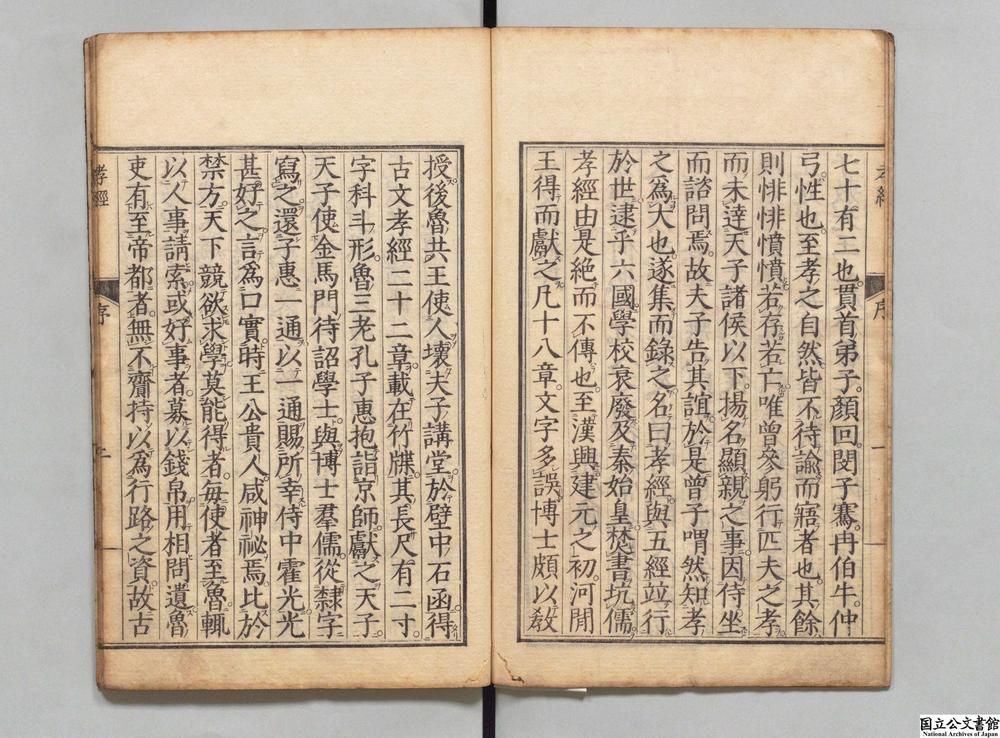 七十有二也貫首弟子顏回閔子騫冉伯牛仲
弓性也至孝之自然皆不待諭而寤者也其餘
則悱悱憤憤若存若亡唯曾參躬行匹夫之孝
而未達天子諸侯以下揚名顯親之事因侍坐
而諮問焉故夫子告其誼於是曾子喟然知孝
之爲大也遂集而錄之名曰孝經與五經竝行
於世逮乎六國學校衰廢及秦始皇焚書坑儒
孝經由是絕而不傳也至漢興建元之初河閒
王得而獻之凡十八章文字多誤博士頗以敎
授後魯共王使人壞夫子講堂於壁中石函得
古文孝經二十二章載在竹牒其長尺有二寸
字科斗形魯三老孔子惠抱詣京師獻之天子
天子使金馬門待詔學士與博士羣儒從隸字
寫之還子惠一通以一通賜所幸侍中霍光光
甚好之言爲口實時王公貴人咸神祕焉比於
禁方天下競欲求學莫能得者每使者至魯輒
以人事請索或好事者募以錢帛用相問遺魯
吏有至帝都者無不齎持以爲行路之資故古
孝經
序
国立公文書館
National Archives of Japan